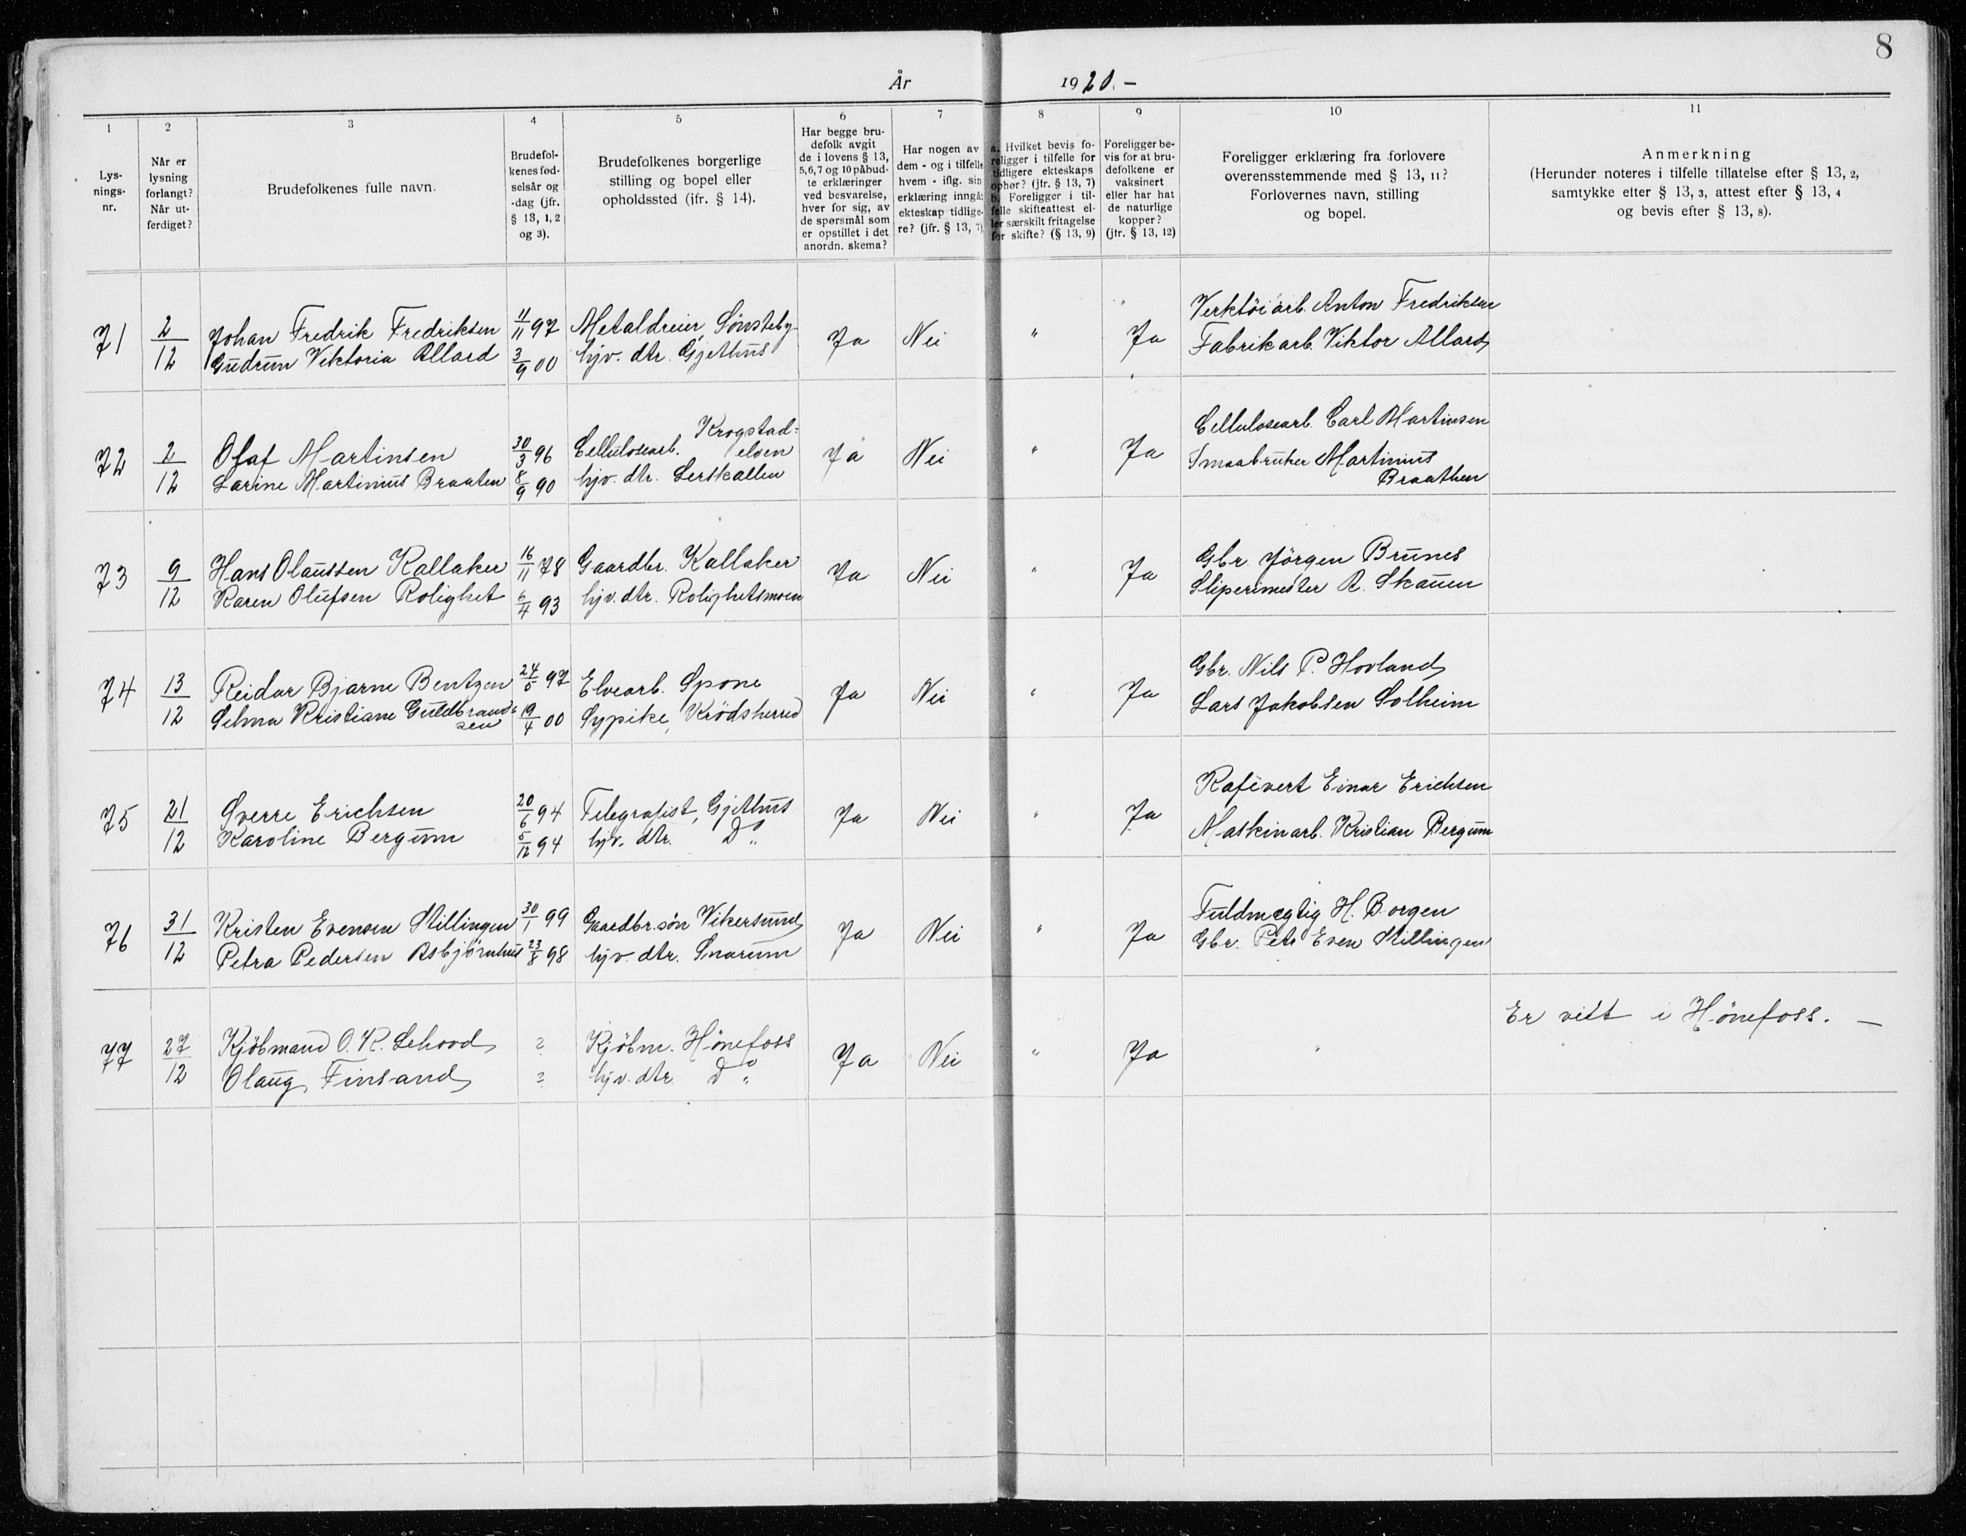 8
År 1920. –
1 2 3 4 5 6 7 8 9 10 11
Lys-
nings-
nr.
Når er
lysning
forlangt?
Når ut-
ferdiget?
Brudefolkenes fulle navn.
Brudefol-
kenes fød-
selsår og
-dag (jfr.
§ 13, 1, 2
og 3).
Brudefolkenes borgerlige
stilling og bopel eller
opholdssted (jfr. § 14).
Har begge bru-
defolk avgit
de i lovens § 13,
5, 6, 7 og 10 påbud-
te erklæringer
ved besvarelse,
hver for sig, av
de spørsmål som
er opstillet i det
anordn. skema?
Har nogen av
dem - og i tilfelle
hvem - iflg. sin
erklæring inngå
ekteskap tidlige-
re? (jfr. § 13, 7)
a. Hvilket bevis fo-
religger i tilfelle for
tidligere ekteskaps
ophør? (jfr. § 13, 7)
b. Foreligger i til-
felle skifteattest el-
ler særskilt fritagelse
for skifte? (§ 13, 9)
Foreligger be-
vis for at bru-
defolkene er
vaksinert
eller har hat
de naturlige
kopper?
(jfr. § 13, 12)
Foreligger erklæring fra forlovere
overensstemmende med § 13, 11?
Forlovernes navn, stilling
og bopel.
Anmerkning
(Herunder noteres i tilfelle tillatelse efter § 13, 2,
samtykke efter § 13, 3, attest efter § 13, 4
og bevis efter § 13, 8).
71 2/12 Johan Fredrik Fredriksen 11/11 97 Metaldreier, Sønsteby Ja Nei " Ja Verktöiarb. Anton Fredriksen
Gudrun Viktoria Allard 3/9 00 hjv. dtr. Gjethus Fabrikarb. Viktor Allard
72 2/12 Olaf Martinsen 30/3 96 Cellulosearb. Krogstad=
elven Ja Nei " Ja Cellulosearb. Carl Martinsen
Larine Martinius Braaten 8/9 90 hjv. dtr. Lerskallen Smaabruker Martinius
Braathen
73 9/12 Hans Olaussen Kallaker 16/11 78 Gaardbr. Kallaker Ja Nei " Ja Gbr. Jörgen Brunes
Karen Olufsen Rolighet 6/4 93 hjv. dtr. Rolighetsmoen Sliperimester R. Skauen
74 13/12 Reidar Bjarne Bentzen 24/5 97 Elvearb. Spone Ja Nei " Ja Gbr. Nils P. Hovland
Selma Kristiane Guldbrand=
sen 19/4 00 Sypike, Krödsherred Lars Jakobsen Solheim
75 21/12 Sverre Erichsen 20/6 94 Telegrafist, Gjethus Ja Nei " Ja Kafévert Einar Erichsen
Karoline Bergum 5/12 94 hjv. dtr. Do „ Maskinarb. Kristian Bergum
76 31/12 Kristen Evensen Stillingen 30/1 99 Gaardbr.søn Vikersund Ja Nei " Ja Fuldmægtig H. Borgen
Petra Pedersen Asbjørnhus 23/8 98 hjv. dtr. Snarum Gbr. Even Stillingen
77 27/12 Kjöbmand O. K. ? Kjöbm. Hønefoss Ja Nei " Ja " Er viet i Hønefoss. —
Olaug Finsand ? hjv. dtr. Do „